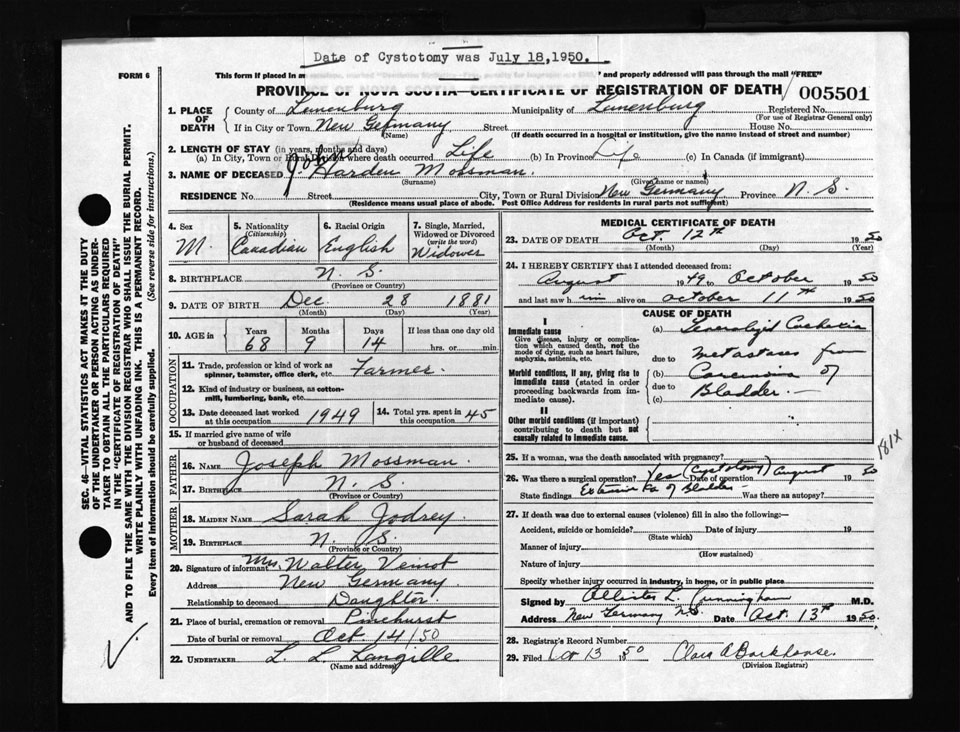 Date of Cystotomy was July 18,1950.
FORM 6
This form if placed in a and properly addressed will pass through the mail "FREE"
PROVINCE OF NOVA SCOTIA—CERTIFICATE OF REGISTRATION OF DEATH 005501
1. PLACE OF DEATH
County of Lunenburg Municipality of Lunenburg Registered No.
(For use of Registrar General only)
If in City or Town New Germany Street House No.
(Name) (If death occurred in a hospital or institution, give the name instead of street and number)
2. LENGTH OF STAY (in years, months and days)
(a) In City, Town or Rural Division where death occurred Life (b) In Province Life (c) In Canada (if immigrant)
3. NAME OF DECEASED J. John Harden Mossman.
(Surname) (Given name or names)
RESIDENCE No. Street City, Town or Rural Division New Germany Province N. S.
(Residence means usual place of abode. Post Office Address for residents in rural parts not sufficient)
4. Sex M.
5. Nationality (Citizenship) Canadian
6. Racial Origin English
7. Single, Married, Widowed or Divorced (write the word) Widower
8. BIRTHPLACE N. S.
(Province or Country)
9. DATE OF BIRTH Dec 28 1881
(Month) (Day) (Year)
10. AGE in Years 68 Months 9 Days 14 If less than one day old
hrs. or min.
OCCUPATION
11. Trade, profession or kind of work as spinner, teamster, office clerk, etc. Farmer.
12. Kind of industry or business, as cotton-mill, lumbering, bank, etc.
13. Date deceased last worked at this occupation 1949
14. Total yrs. spent in this occupation 45
15. If married give name of wife or husband of deceased
FATHER
16. NAME Joseph Mossman.
17. BIRTHPLACE N. S.
(Province or Country)
MOTHER
18. MAIDEN NAME Sarah Jodrey.
19. BIRTHPLACE N. S.
(Province or Country)
20. Signature of informant Mrs. Walter Veinot
Address New Germany.
Relationship to deceased Daughter.
21. Place of burial, cremation or removal Pinehurst
Date of burial or removal Oct 14/50
22. UNDERTAKER L. L. Langille
(Name and address)
MEDICAL CERTIFICATE OF DEATH
23. DATE OF DEATH Oct. 12th 1950
(Month) (Day) (Year)
24. I HEREBY CERTIFY that I attended deceased from:
August 1949 to October 1950
and last saw him alive on October 11th 1950
CAUSE OF DEATH
I
Immediate cause
Give disease, injury or complication which caused death, not the mode of dying, such as heart failure, asphyxia, asthenia, etc.
(a) Generalized Cachexia
due to Metastases from
Morbid conditions, if any, giving rise to immediate cause (stated in order proceeding backwards from immediate cause).
(b) Carcinoma of
due to Bladder.
(c)
II
Other morbid conditions (if important) contributing to death but not causally related to immediate cause.
181x
25. If a woman, was the death associated with pregnancy?
26. Was there a surgical operation? Yes (Cystotomy) Date of operation August 1950
State findings Extensive Ca of Bladder Was there an autopsy?
27. If death was due to external causes (violence) fill in also the following:—
Accident, suicide or homicide? Date of injury 19
(State which)
Manner of injury
(How sustained)
Nature of injury
Specify whether injury occurred in industry, in home, or in public place
Signed by Allister L. Cunningham M.D.
Address New Germany N.S. Date Oct. 13th 1950
28. Registrar's Record Number
29. Filed Oct 13 1950 Clara A Barkhouse.
(Division Registrar)
SEC. 46—VITAL STATISTICS ACT MAKES IT THE DUTY
OF THE UNDERTAKER OR PERSON ACTING AS UNDER-
TAKER TO OBTAIN ALL THE PARTICULARS REQUIRED
IN THE "CERTIFICATE OF REGISTRATION OF DEATH"
AND TO FILE THE SAME WITH THE DIVISION REGISTRAR WHO SHALL ISSUE THE BURIAL PERMIT.
WRITE PLAINLY WITH UNFADING INK. THIS IS A PERMANENT RECORD.
Every item of information should be carefully supplied. (See reverse side for instructions.)